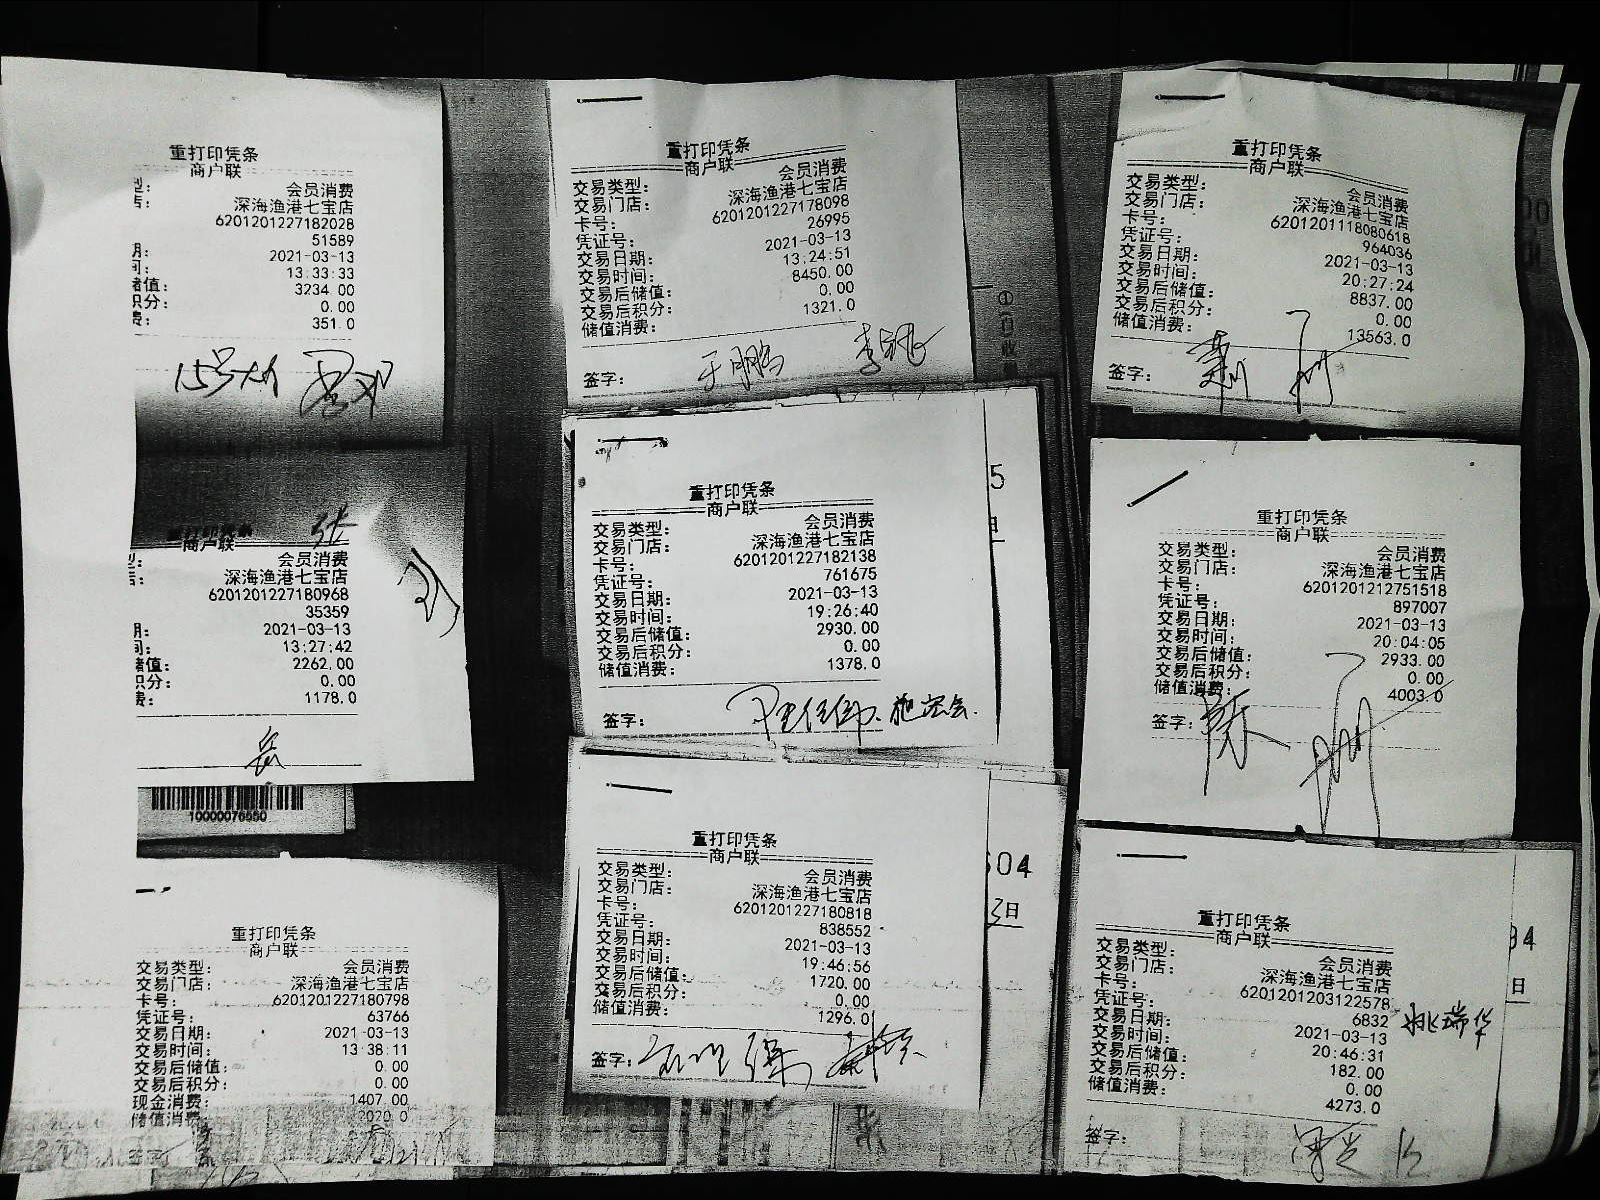 重打印凭条
商户联
型: 会员消费
店: 深海渔港七宝店
6201201227182028
51589
期: 2021-03-13
间: 13:33:33
储值: 3234.00
积分: 0.00
费: 351.0
15号
重打印凭条
商户联
交易类型: 会员消费
交易门店: 深海渔港七宝店
卡号: 6201201227178098
凭证号: 26995
交易日期: 2021-03-13
交易时间: 13:24:51
交易后储值: 8450.00
交易后积分: 0.00
储值消费: 1321.0
签字: 于鹏
重打印凭条
商户联
交易类型: 会员消费
交易门店: 深海渔港七宝店
卡号: 6201201118080618
凭证号: 964036
交易日期: 2021-03-13
交易时间: 20:27:24
交易后储值: 8837.00
交易后积分: 0.00
储值消费: 13563.0
签字:
张
重打印凭条
商户联
型: 会员消费
店: 深海渔港七宝店
6201201227180968
35359
期: 2021-03-13
间: 13:27:42
储值: 2262.00
积分: 0.00
费: 1178.0
岳
10000076550
重打印凭条
商户联
交易类型: 会员消费
交易门店: 深海渔港七宝店
卡号: 6201201227182138
凭证号: 761675
交易日期: 2021-03-13
交易时间: 19:26:40
交易后储值: 2930.00
交易后积分: 0.00
储值消费: 1378.0
签字:
重打印凭条
商户联
交易类型: 会员消费
交易门店: 深海渔港七宝店
卡号: 6201201212751518
凭证号: 897007
交易日期: 2021-03-13
交易时间: 20:04:05
交易后储值: 2933.00
交易后积分: 0.00
储值消费: 4003.0
签字: 陈
重打印凭条
商户联
交易类型: 会员消费
交易门店: 深海渔港七宝店
卡号: 6201201227180798
凭证号: 63766
交易日期: 2021-03-13
交易时间: 13:38:11
交易后储值: 0.00
交易后积分: 0.00
现金消费: 1407.00
储值消费: 2020.0
签字:
重打印凭条
商户联
交易类型: 会员消费
交易门店: 深海渔港七宝店
卡号: 6201201227180818
凭证号: 838552
交易日期: 2021-03-13
交易时间: 19:46:56
交易后储值: 1720.00
交易后积分: 0.00
储值消费: 1296.0
签字:
504
3日
重打印凭条
商户联
交易类型: 会员消费
交易门店: 深海渔港七宝店
卡号: 6201201203122578
凭证号: 6832
交易日期: 2021-03-13
交易时间: 20:46:31
交易后储值: 182.00
交易后积分: 0.00
储值消费: 4273.0
签字:
姚瑞华
日